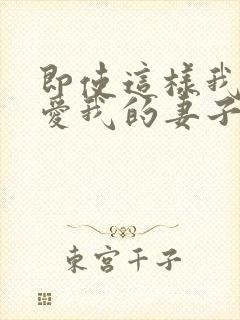 即使這樣我
愛我的妻子
東宮千子